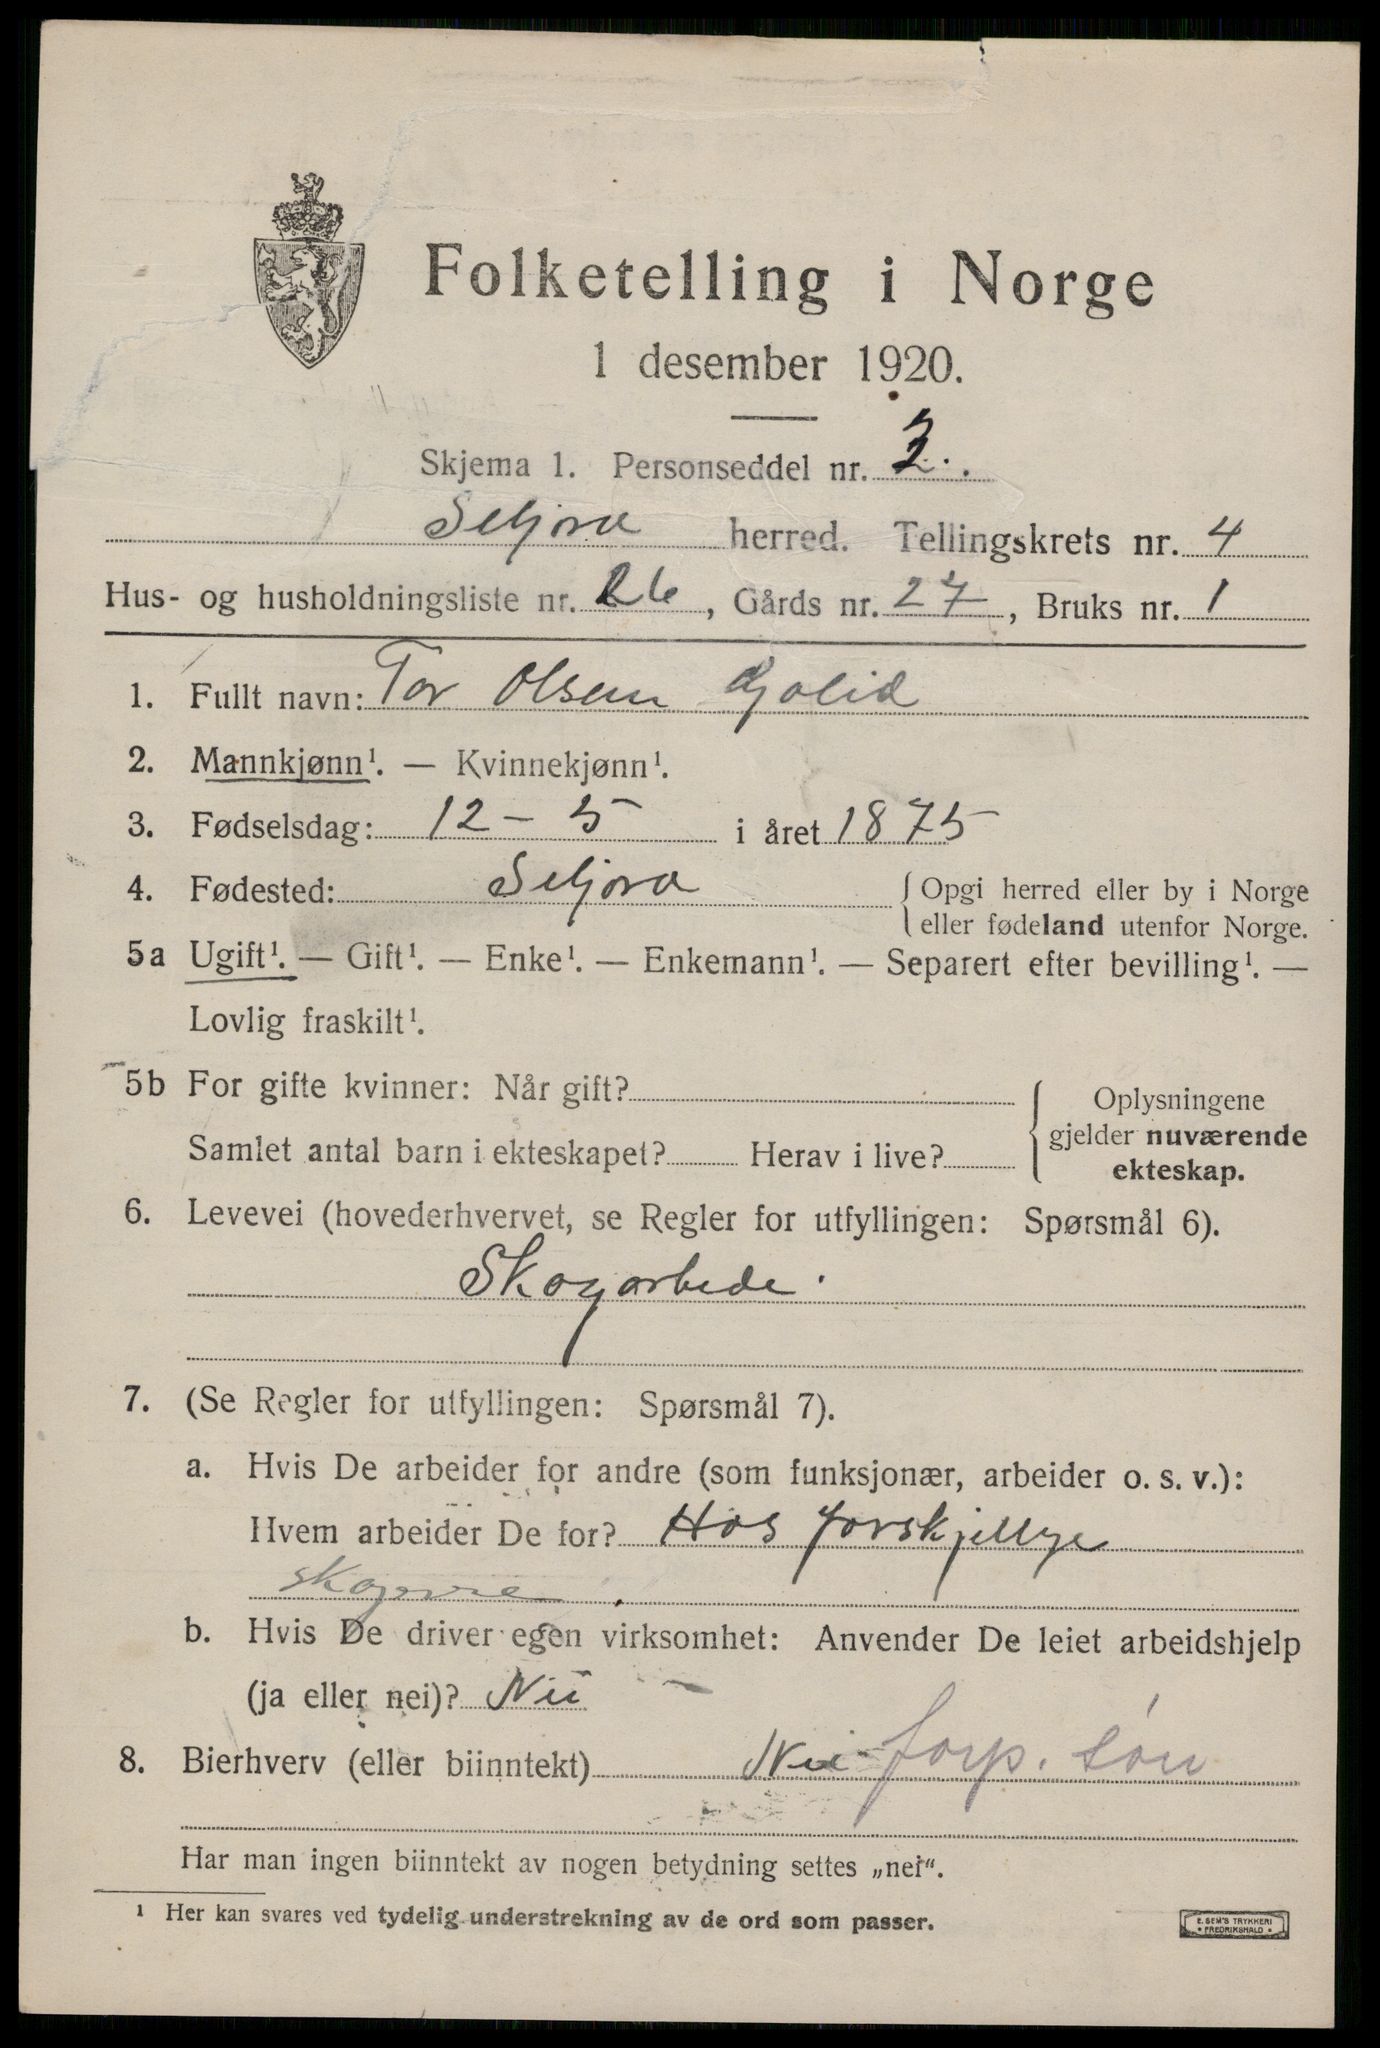 Folketelling i Norge
1 desember 1920.
Skjema 1. Personseddel nr. 3.
Seljord herred. Tellingskrets nr. 4
Hus- og husholdningsliste nr. 26, Gårds nr. 27, Bruks nr. 1
1. Fullt navn: Tor Olsen Gjolid
2. Mannkjønn¹. — Kvinnekjønn¹.
3. Fødselsdag: 12 - 5 i året 1875
4. Fødested: Seljord { Opgi herred eller by i Norge
eller fødeland utenfor Norge.
5a Ugift¹. — Gift¹. — Enke¹. — Enkemann¹. — Separert efter bevilling¹. —
Lovlig fraskilt¹.
5b For gifte kvinner: Når gift?
Samlet antal barn i ekteskapet? Herav i live?
Oplysningene
gjelder nuværende
ekteskap.
6. Levevei (hovederhvervet, se Regler for utfyllingen: Spørsmål 6).
Skogarbede.
7. (Se Regler for utfyllingen: Spørsmål 7).
a. Hvis De arbeider for andre (som funksjonær, arbeider o. s. v.):
Hvem arbeider De for? Hos forskjellige
b. Hvis De driver egen virksomhet: Anvender De leiet arbeidshjelp
(ja eller nei)? Nei
8. Bierhverv (eller biinntekt) Nei forp. søn
Har man ingen biinntekt av nogen betydning settes „nei“.
¹ Her kan svares ved tydelig understrekning av de ord som passer.
E. SEM'S TRYKKERI
• FREDRIKSHALD •